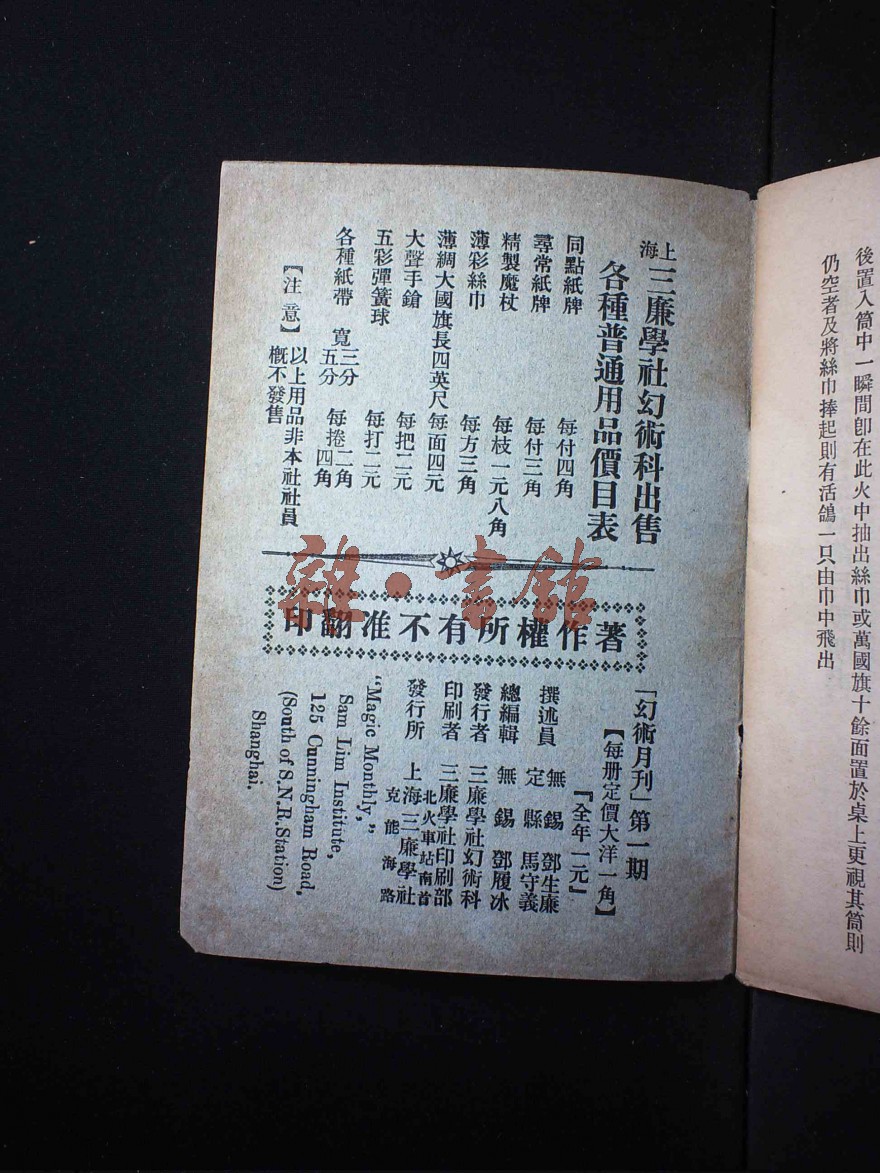 後置入筒中一瞬間卽在此火中抽出絲巾或萬國旗十餘面置於桌上更視其筒則
仍空者及將絲巾捧起則有活鴿一只由巾中飛出
上海三廉學社幻術科出售
各種普通用品價目表
同點紙牌 每付四角
尋常紙牌 每付三角
精製魔杖 每枝一元八角
薄彩絲巾 每方三角
薄綢大國旗長四英尺 每面四元
大聲手鎗 每把二元
五彩彈簧球 每打二元
各種紙帶 寬三分 每捲二角
五分 四角
【注意】以上用品非本社社員
概不發售
著作權所有不准翻印
「幻術月刊」第一期
【每册定價大洋一角】
『全年一元』
撰述員 無錫 鄧生廉
定縣 馬守義
總編輯 無錫 鄧履冰
發行者 三廉學社幻術科
印刷者 三廉學社印刷部
發行所 上海北火車站南首克能海路三廉學社
"Magic Monthly,"
Sam Lim Institute,
125 Cunningham Road,
(South of S.N.R. Station)
Shanghai.
雜·書館